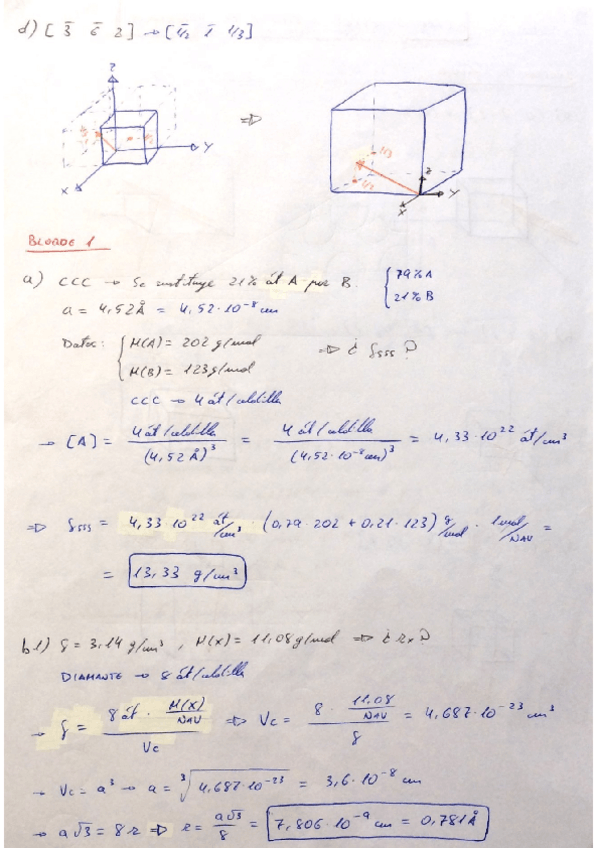 d) [ 3̄ 6̄ 2 ] → [ 1̄/2 1̄ 1/3 ]
z z
y
x
1/3
1/2
y
x
⇒
BLOQUE 1
a) CCC → Se sustituye 21% át A por B. { 79% A
21% B
a = 4,52 Å = 4,52·10⁻⁸ cm
Datos: { M(A) = 202 g/mol
M(B) = 123 g/mol
⇒ ¿ ρsss ?
CCC → 4 át/celdilla
→ [A] = 4 át/celdilla / (4,52 Å)³ = 4 át/celdilla / (4,52·10⁻⁸ cm)³ = 4,33·10²² át/cm³
⇒ ρsss = 4,33·10²² át/cm³ · (0,79·202 + 0,21·123) g/mol · 1mol/NAV =
= 13,33 g/cm³
b1) ρ = 3,14 g/cm³, M(X) = 11,08 g/mol ⇒ ¿ rx ?
DIAMANTE → 8 át/celdilla
→ ρ = 8 át · M(X)/NAV / Vc ⇒ Vc = 8 · 11,08/NAV / ρ = 4,687·10⁻²³ cm³
→ Vc = a³ → a = ∛4,687·10⁻²³ = 3,6·10⁻⁸ cm
→ a√3 = 8r ⇒ r = a√3/8 = 7,806·10⁻⁹ cm = 0,781 Å